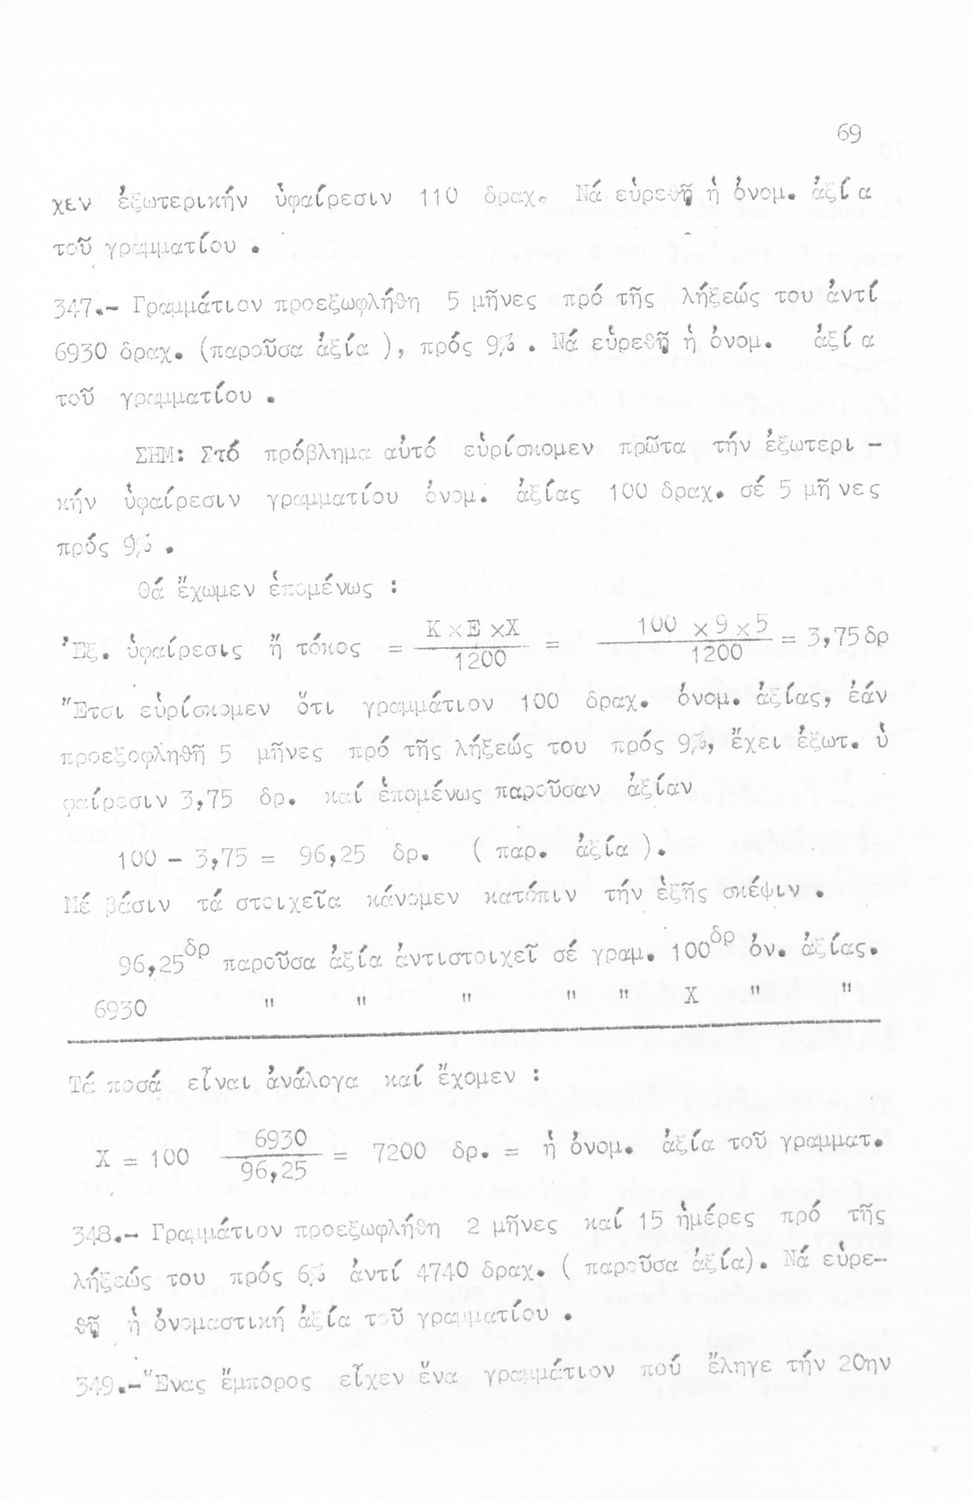 69
χεν ἐξωτερικήν ὑφαίρεσιν 110 δραχ. Νά εὑρεθῇ ἡ ὀνομ. ἀξία
τοῦ γραμματίου .
347.- Γραμμάτιον προεξωφλήθη 5 μῆνες πρό τῆς λήξεώς του ἀντί
6930 δραχ. (παροῦσα ἀξία ), πρός 9% . Νά εὑρεθῇ ἡ ὀνομ. ἀξία
τοῦ γραμματίου .
ΣΗΜ: Στό πρόβλημα αὐτό εὑρίσκομεν πρῶτα τήν ἐξωτερι -
κήν ὑφαίρεσιν γραμματίου ὀνομ. ἀξίας 100 δραχ. σέ 5 μῆνες
πρός 9% .
Θά ἔχωμεν ἑπομένως :
Ἐξ. ὑφαίρεσις ἤ τόκος = K x E x X / 1200 = 100 x 9 x 5 / 1200 = 3,75 δρ
Ἔτσι εὑρίσκομεν ὅτι γραμμάτιον 100 δραχ. ὀνομ. ἀξίας, ἐάν
προεξοφληθῇ 5 μῆνες πρό τῆς λήξεώς του πρός 9%, ἔχει ἐξωτ. ὑ
φαίρεσιν 3,75 δρ. καί ἑπομένως παροῦσαν ἀξίαν
100 - 3,75 = 96,25 δρ. ( παρ. ἀξία ).
Μέ βάσιν τά στοιχεῖα κάνομεν κατόπιν τήν ἑξῆς σκέψιν .
96,25δρ παροῦσα ἀξία ἀντιστοιχεῖ σέ γραμ. 100δρ ὀν. ἀξίας.
6930 " " " " " X " "
Τά ποσά εἶναι ἀνάλογα καί ἔχομεν :
X = 100 6930 / 96,25 = 7200 δρ. = ἡ ὀνομ. ἀξία τοῦ γραμματ.
348.- Γραμμάτιον προεξωφλήθη 2 μῆνες καί 15 ἡμέρες πρό τῆς
λήξεώς του πρός 6% ἀντί 4740 δραχ. ( παροῦσα ἀξία). Νά εὑρε-
θῇ ἡ ὀνομαστική ἀξία τοῦ γραμματίου .
349.- Ἕνας ἔμπορος εἶχεν ἕνα γραμμάτιον πού ἔληγε τήν 20ην